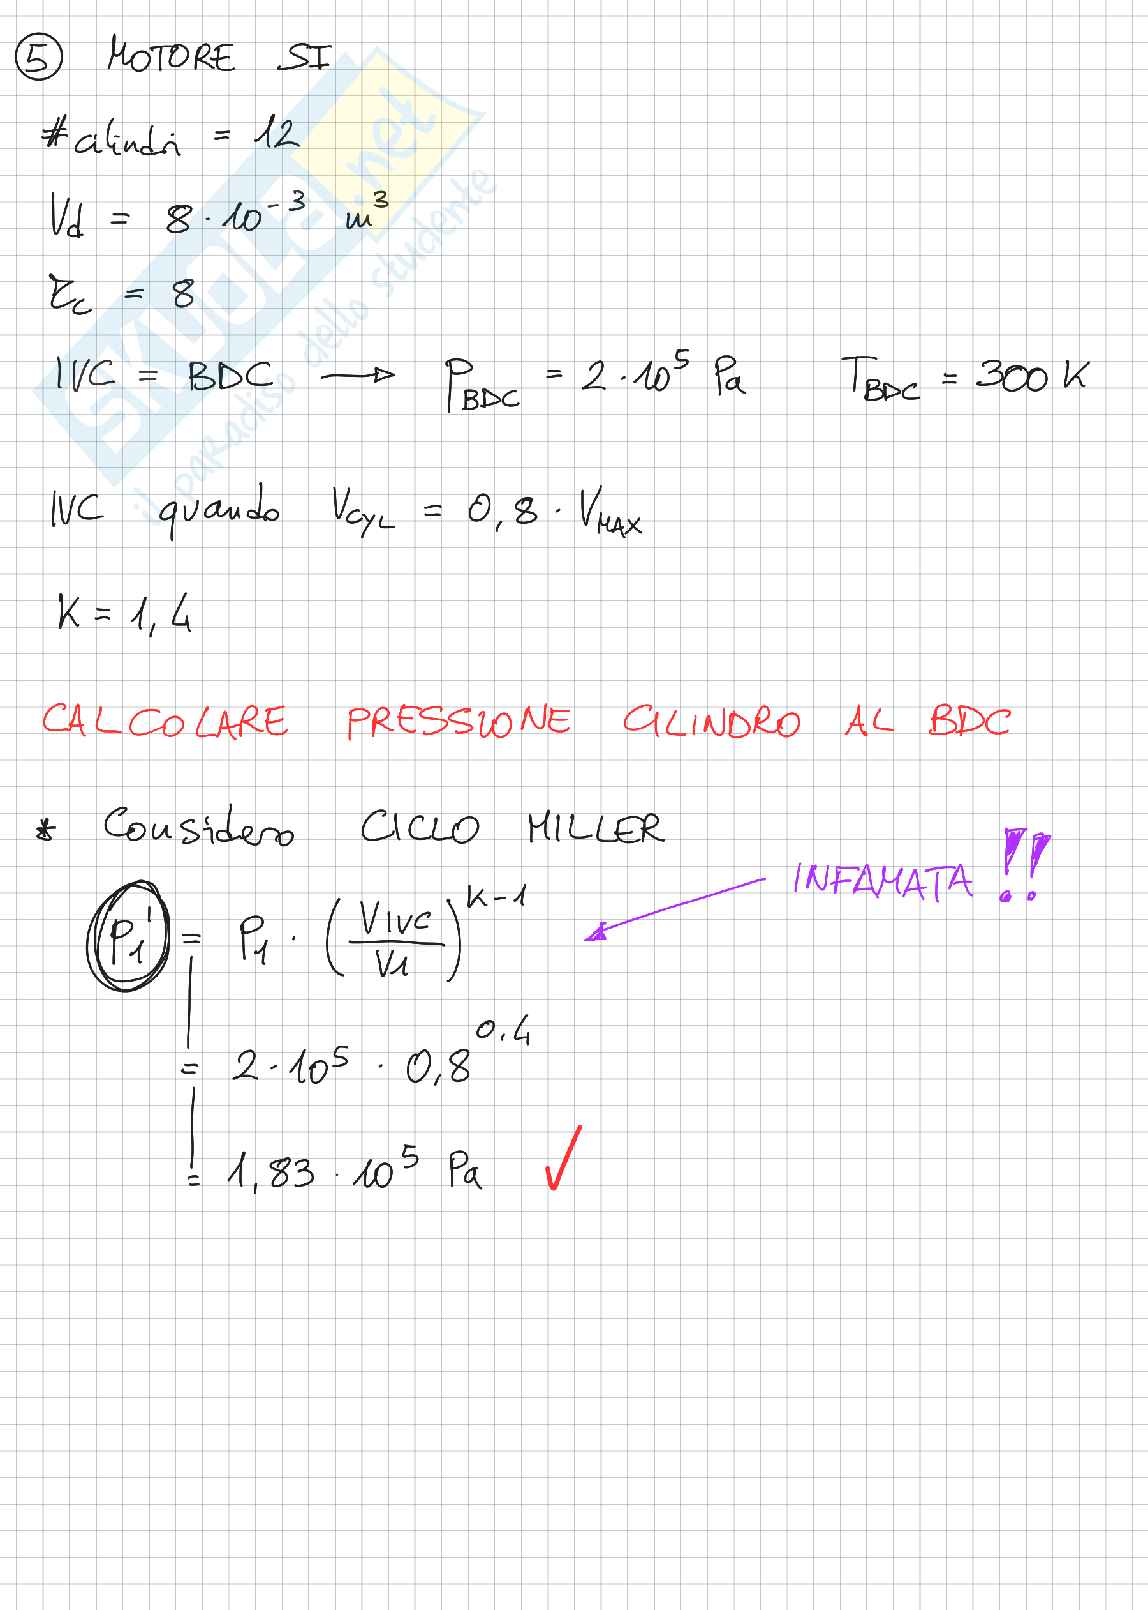 ⑤ MOTORE SI
#cilindri = 12
Vd = 8·10⁻³ m³
τc = 8
IVC = BDC → P_BDC = 2·10⁵ Pa T_BDC = 300 K
IVC quando V_CYL = 0,8 · V_MAX
K = 1,4
CALCOLARE PRESSIONE CILINDRO AL BDC
* Considero CICLO MILLER
INFAMATA !!
P₁' = P₁ · (V_IVC / V₁)^(K-1)
= 2·10⁵ · 0,8^0,4
= 1,83 · 10⁵ Pa ✓
SKUOLA.net
il paradiso dello studente